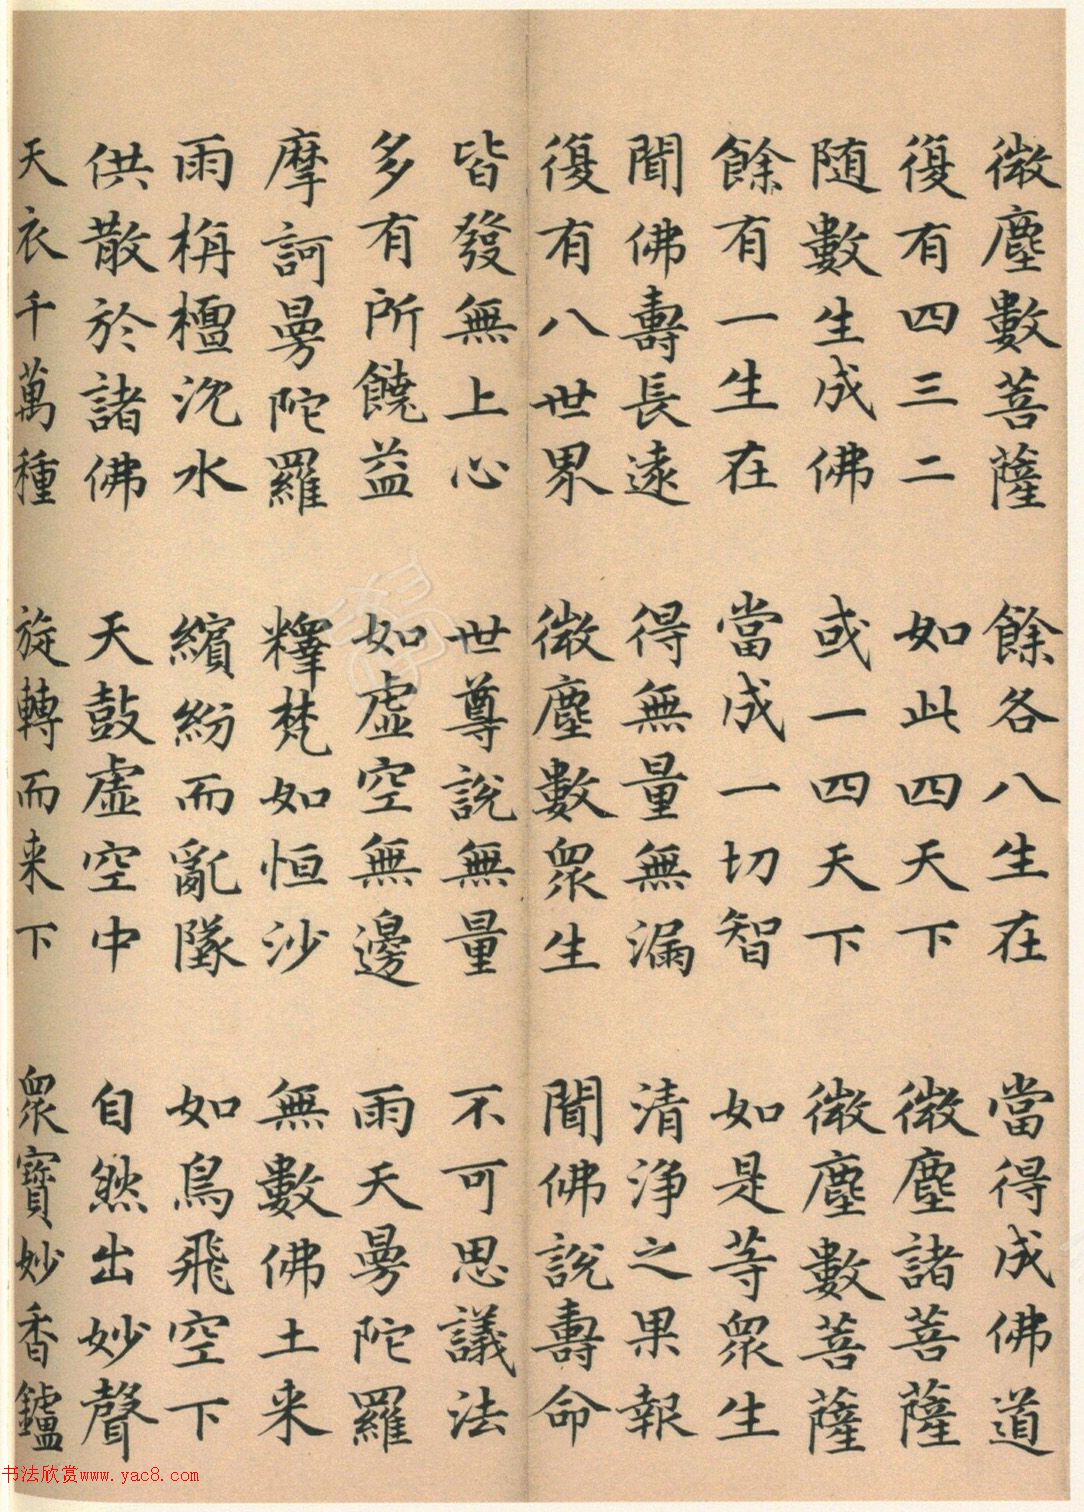 微塵數菩薩 餘各八生在 當得成佛道
復有四三二 如此四天下 微塵諸菩薩
随數生成佛 或一四天下 微塵數菩薩
餘有一生在 當成一切智 如是等衆生
聞佛壽長遠 得無量無漏 清淨之果報
復有八世界 微塵數衆生 聞佛說壽命
皆發無上心 世尊說無量 不可思議法
多有所饒益 如虛空無邊 雨天曼陀羅
摩訶曼陀羅 釋梵如恒沙 無數佛土来
雨栴檀沉水 繽紛而亂墜 如鳥飛空下
供散於諸佛 天鼓虛空中 自然出妙聲
天衣千萬種 旋轉而来下 衆寶妙香鑪
书法欣赏www.yac8.com